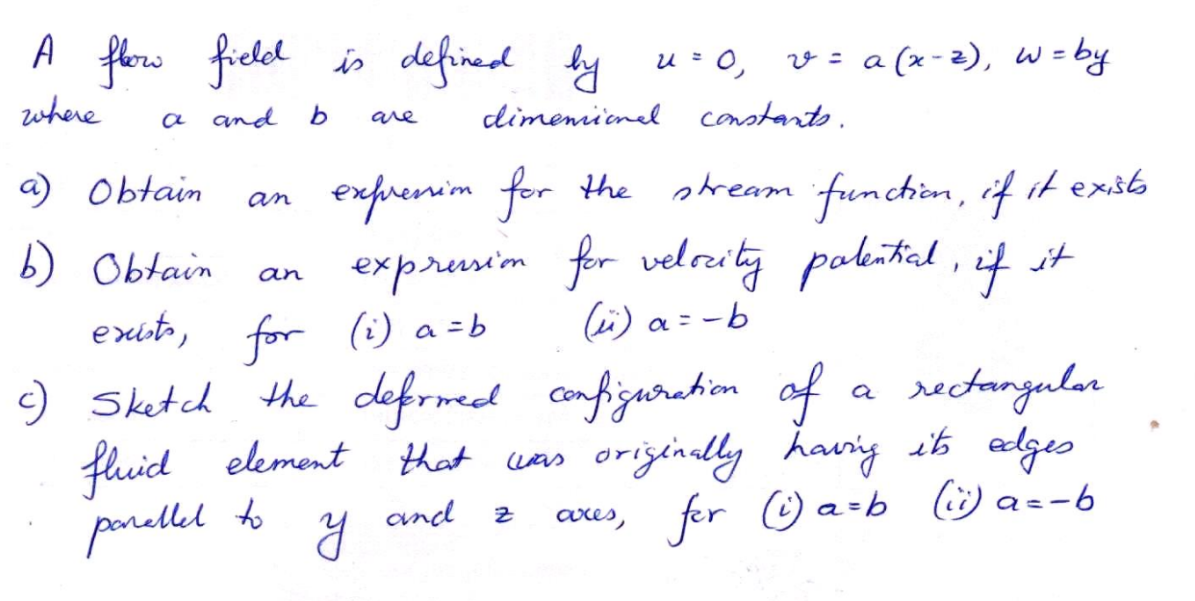 A flow field is defined by u = 0, v = a(x-z), w = by
where a and b are dimensional constants.
a) Obtain an expression for the stream function, if it exists
b) Obtain an expression for velocity potential, if it
exists, for (i) a=b (ii) a=-b
c) Sketch the deformed configuration of a rectangular
fluid element that was originally having its edges
parellel to y and z axes, for (i) a=b (ii) a=-b